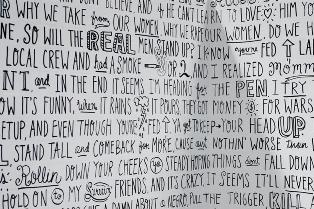 BELIEVE AND & HE CAN'T LEARN TO LOVE HIM YO
R WHY WE TAKE from OUR WOMEN, WHY WE OUR WOMEN, DO WE H
E. SO WILL the REAL MEN STAND UP? I KNOW you're FED UP LAD
LOCAL CREW and had a SMOKE OR 2, AND I REALIZED Momm
NT. and IN THE END IT SEEMS I'M HEADING for THE PEN I TRY
OW IT'S FUNNY, when IT RAINS IT POURS, THEY GOT MONEY FOR WARS
ETUP, AND EVEN THOUGH YOU'RE FED UP, ya got to KEEP YOUR HEAD UP
L, STAND TALL and COMEBACK for MORE, CAUSE ain't NOTHIN' WORSE than
's Rollin DOWN YOUR CHEEKS ya STEADY HOPING THINGS don't FALL DOWN
HOLD ON to MY FRIENDS, AND IT'S CRAZY, IT SEEMS IT'LL NEVER
GIVE A DAMN ABOUT a HERO PULL THE TRIGGER KILL A